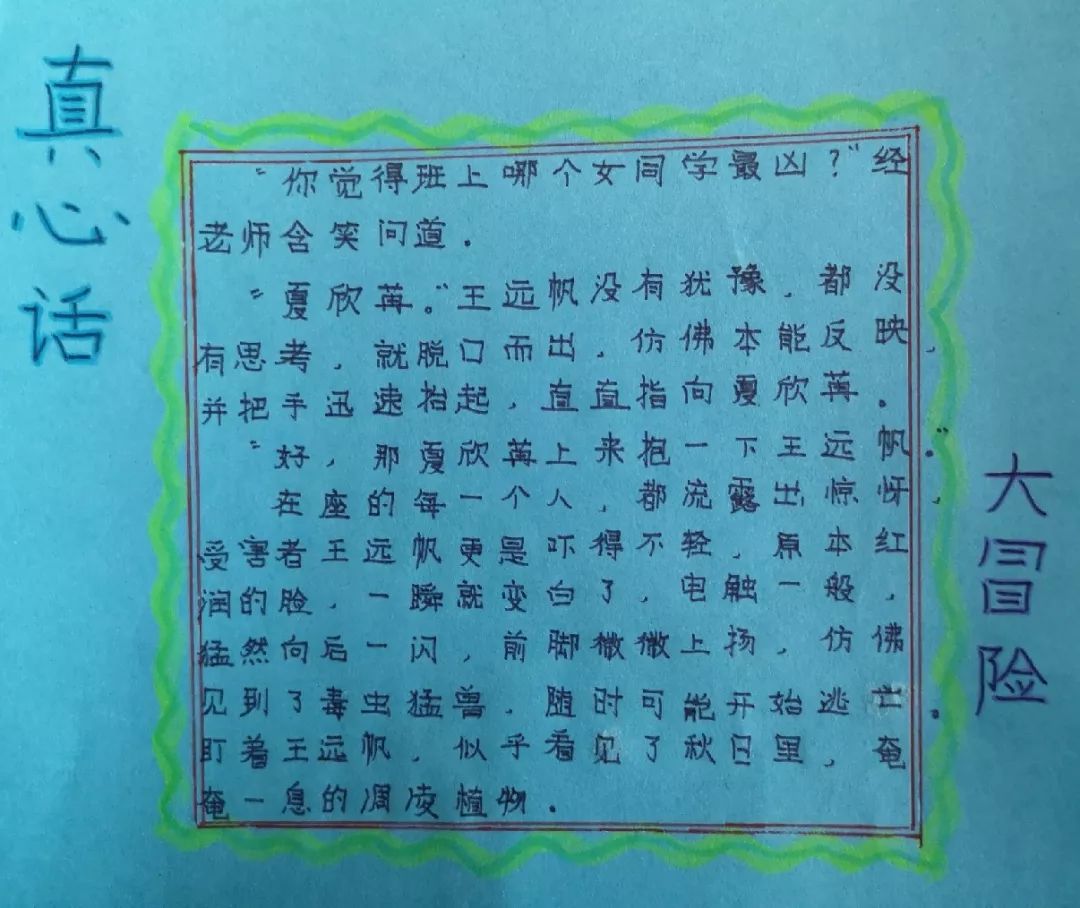 真心话
大冒险
"你觉得班上哪个女同学最凶？"经
老师含笑问道．
"夏欣苒．"王远帆没有犹豫，都没
有思考，就脱口而出，仿佛本能反映，
并把手迅速抬起，直直指向夏欣苒．
"好，那夏欣苒上来抱一下王远帆．"
在座的每一个人，都流露出惊呀，
受害者王远帆更是吓得不轻，原本红
润的脸，一瞬就变白了，电触一般，
猛然向后一闪，前脚微微上扬，仿佛
见到了毒虫猛兽，随时可能开始逃亡．
盯着王远帆，似乎看见了秋日里，奄
奄一息的凋凌植物．